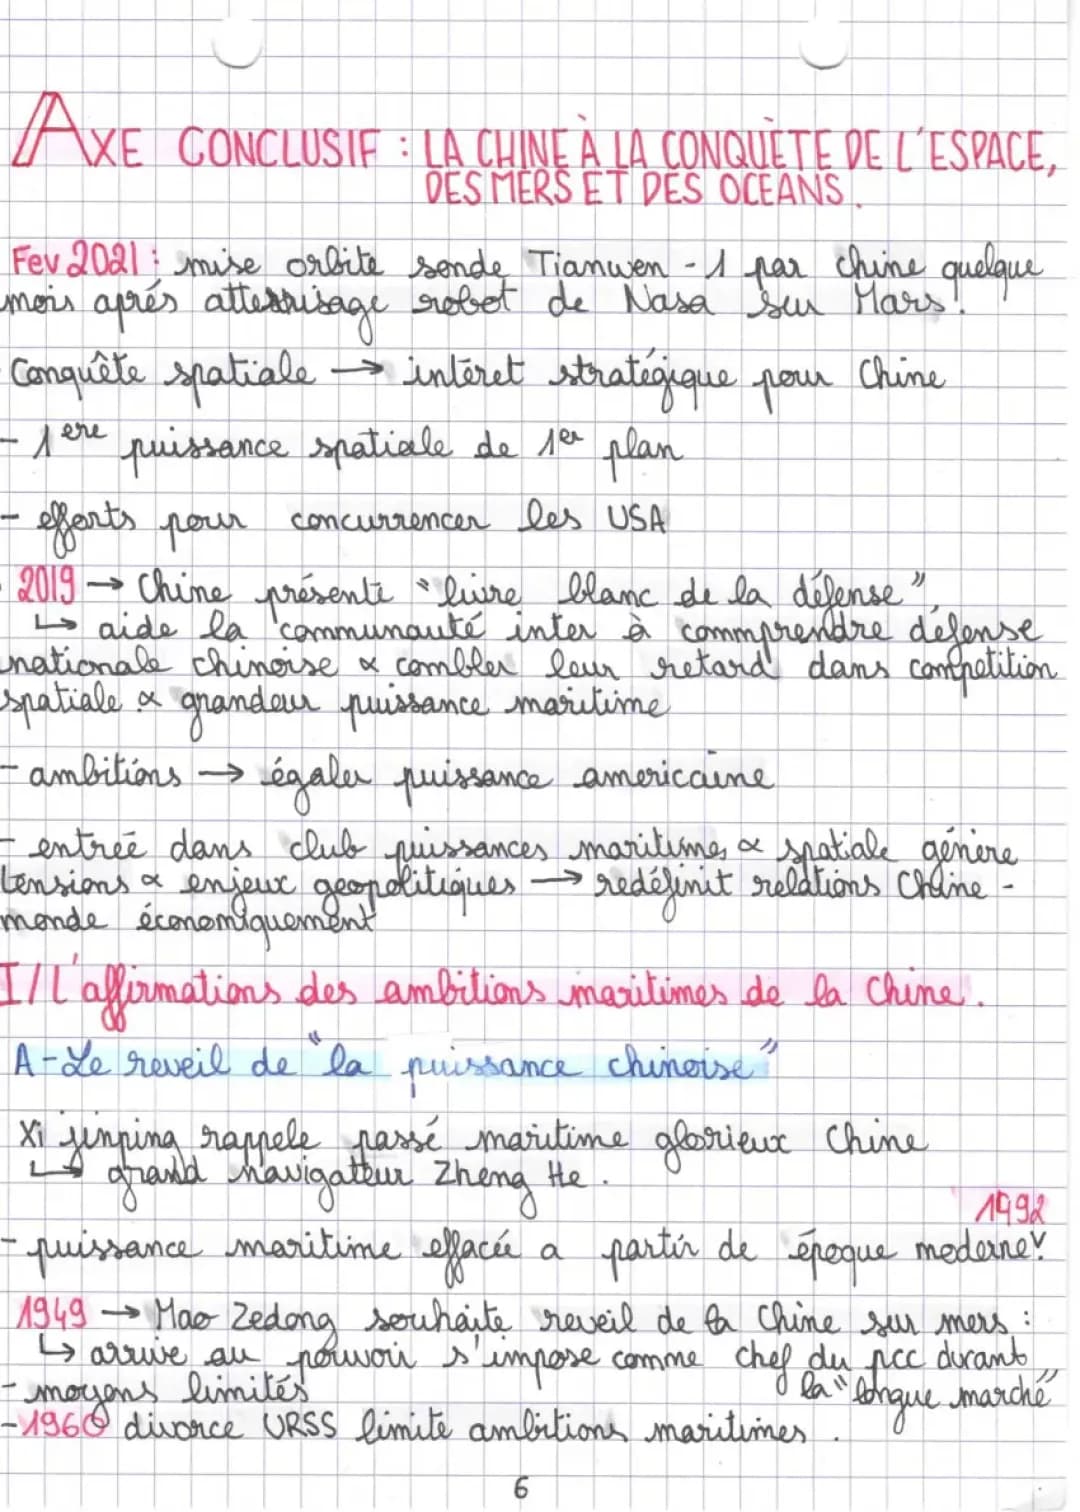 AXE CONCLUSIF : LA CHINE À LA CONQUÈTE DE L'ESPACE,
DES MERS ET DES OCEANS.
Fev 2021 : mise orbite sonde Tianwen-1 par Chine quelque
mois aprés atterrisage robot de Nasa sur Mars.
Conquête spatiale → intéret stratégique pour Chine
- 1ere puissance spatiale de 1er plan
- efforts pour concurrencer les USA
2019 → Chine présente "livre blanc de la défense"
↳ aide la communauté inter à commprendre défense
nationale chinoise & combler leur retard dans compétition
spatiale & grandeur puissance maritime
- ambitions → égaler puissance americaine
- entrée dans club puissances maritimes & spatiale génére
tensions & enjeux geopolitiques → redéfinit relations Chine -
monde économiquement
I/L'affirmations des ambitions maritimes de la Chine.
A-Le reveil de "la puissance chinoise"
Xi jinping rappele passé maritime glorieux Chine
↳ grand navigatteur Zheng He.
1492
- puissance maritime effacée a partir de époque moderne
1949 → Mao Zedong souhaite reveil de la Chine sur mers :
↳ arrive au pouvoir s'impose comme chef du pcc durant
la "longue marché"
- moyens limités
- 1960 divorce URSS limite ambitions maritimes.
6